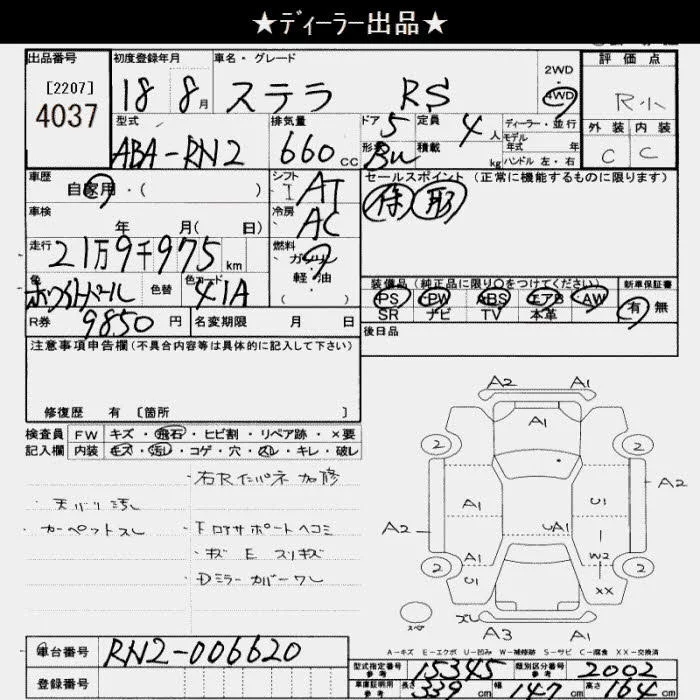 ★ディーラー出品★
出品番号
[2207]
4037
初度登録年月
18 8月
車名・グレード
ステラ RS
2WD
4WD
評価点
R
外装 内装
C C
型式
ABA-RN2
排気量
660 CC
ドア 5
形状 BW
定員 4 人
積載 kg
ディーラー・並行
モデル年式 年
ハンドル 左・右
車歴
自家用・( )
車検
年 月( 日)
走行
21万9千975 km
色
ホワイトパール
色替
色コード
41A
シフト
I AT
冷房
AC
燃料
ガソリン
軽・油
( )
セールスポイント (正常に機能するものに限ります)
装備品 (純正品に限り○をつけてください)
PS PW ABS エアB AW
SR ナビ TV 本革
新車保証書
有 無
R券
9850 円
名変期限 月 日
後日品
注意事項申告欄(不具合内容等は具体的に記入して下さい)
修復歴 有 [箇所 ]
検査員記入欄
FW キズ・飛石・ヒビ割・リペア跡・×要
内装 キズ・汚レ・コゲ・穴・スレ・キレ・破レ
・右Rインパネ加修
・天バリ汚レ
・カーペットスレ
・Fロアサポートヘコミ
・キズ E スリキズ
・Dミラーカバーワレ
A2 A1
A1
2 2
A1 U1
A2
A2
UA1
A1 W2
U1 XX
2 2
A3 A1
A-キズ E-エクボ U-凹み W-補修跡 S-サビ C-腐食 XX-交換済
車台番号
RN2-006620
登録番号
型式指定番号 参考
15345
類別区分番号 参考
2002
車庫証明用 参考
長さ 339 cm 幅 147 cm 高さ 164 cm